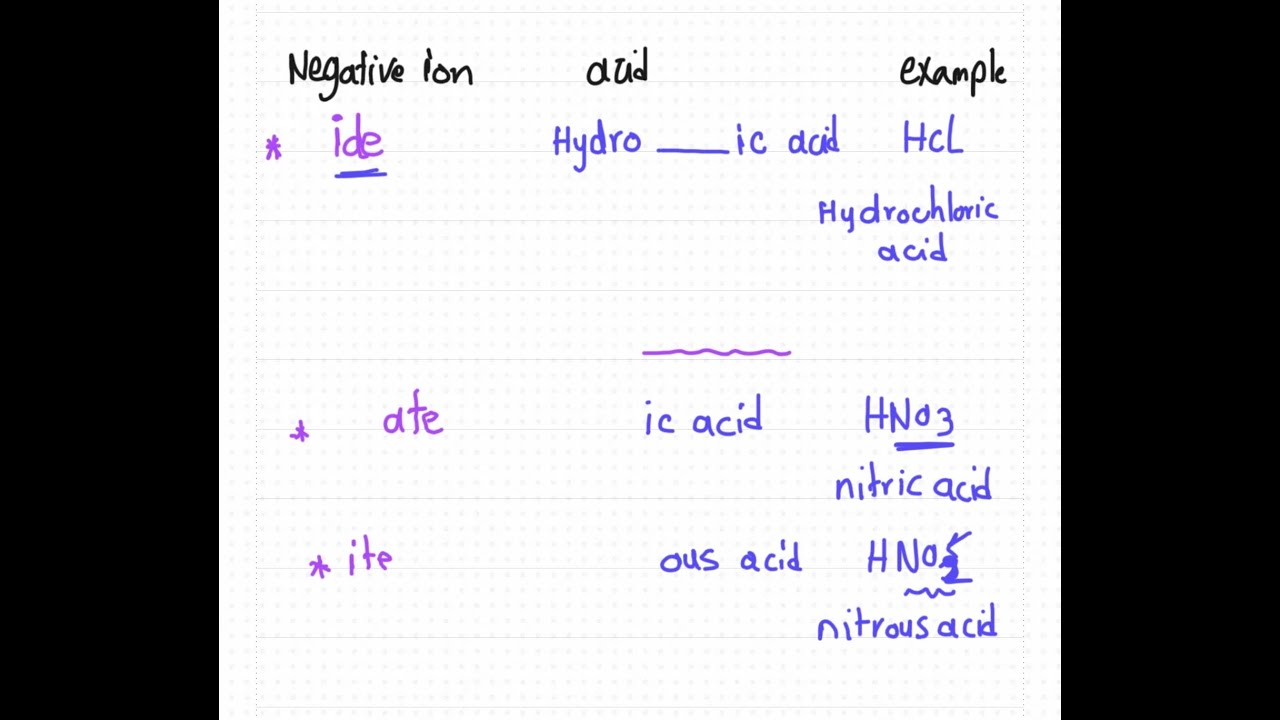 Negative ion acid example
* ide Hydro ___ic acid HCL
Hydrochloric
acid
* ate ic acid HNO3
nitric acid
* ite ous acid HNO
nitrous acid